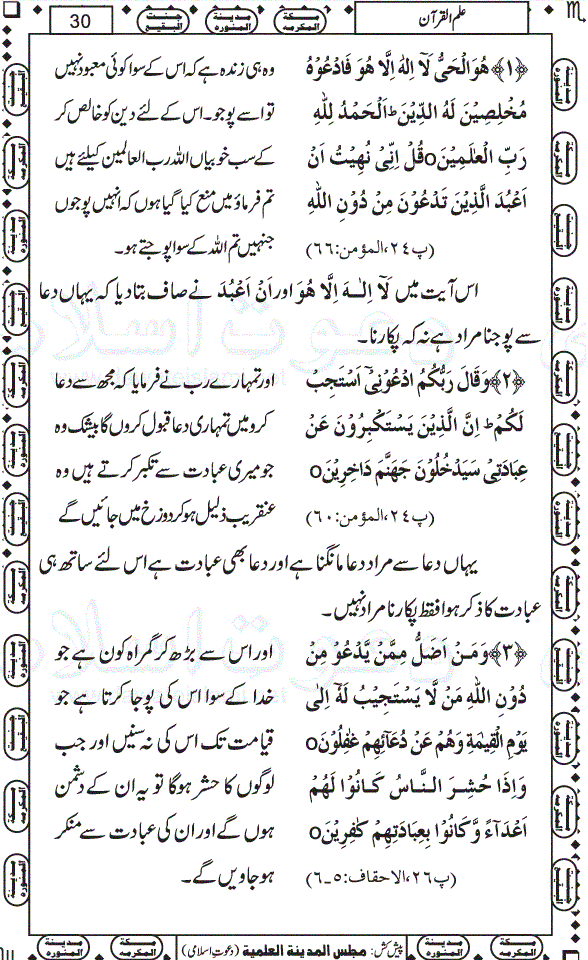 علم القرآن
30
﴿۱﴾ هُوَ الْحَیُّ لَاۤ اِلٰهَ اِلَّا هُوَ فَادْعُوْهُ
مُخْلِصِیْنَ لَهُ الدِّیْنَ ؕ اَلْحَمْدُ لِلّٰهِ
رَبِّ الْعٰلَمِیْنَ○ قُلْ اِنِّیْ نُهِیْتُ اَنْ
اَعْبُدَ الَّذِیْنَ تَدْعُوْنَ مِنْ دُوْنِ اللّٰهِ
(پ۲۴،المؤمن:۶۶)
وہ ہی زندہ ہے کہ اس کے سوا کوئی معبود نہیں
تو اسے پوجو۔ اس کے لئے دین کو خالص کر
کے سب خوبیاں اللہ رب العالمین کیلئے ہیں
تم فرماؤ میں منع کیا گیا ہوں کہ انہیں پوجوں
جنہیں تم اللہ کے سوا پوجتے ہو۔
اس آیت میں لَاۤ اِلٰـهَ اِلَّا هُوَ اور اَنْ اَعْبُدَ نے صاف بتادیا کہ یہاں دعا
سے پوجنا مراد ہے نہ کہ پکارنا۔
﴿۲﴾ وَقَالَ رَبُّكُمُ ادْعُوْنِیْۤ اَسْتَجِبْ
لَكُمْ ؕ اِنَّ الَّذِیْنَ یَسْتَكْبِرُوْنَ عَنْ
عِبَادَتِیْ سَیَدْخُلُوْنَ جَهَنَّمَ دَاخِرِیْنَ○
(پ۲۴،المؤمن:۶۰)
اور تمہارے رب نے فرمایا کہ مجھ سے دعا
کرو میں تمہاری دعا قبول کروں گا بیشک وہ
جو میری عبادت سے تکبر کرتے ہیں وہ
عنقریب ذلیل ہو کر دوزخ میں جائیں گے
یہاں دعا سے مراد دعا مانگنا ہے اور دعا بھی عبادت ہے اس لئے ساتھ ہی
عبادت کا ذکر ہوا فقط پکارنا مراد نہیں۔
﴿۳﴾ وَمَنْ اَضَلُّ مِمَّنْ یَّدْعُوْ مِنْ
دُوْنِ اللّٰهِ مَنْ لَّا یَسْتَجِیْبُ لَهٗۤ اِلٰی
یَوْمِ الْقِیٰمَةِ وَهُمْ عَنْ دُعَآئِهِمْ غٰفِلُوْنَ○
وَاِذَا حُشِرَ النَّاسُ كَانُوْا لَهُمْ
اَعْدَآءً وَّكَانُوْا بِعِبَادَتِهِمْ كٰفِرِیْنَ○
(پ۲۶،الاحقاف:۵۔۶)
اور اس سے بڑھ کر گمراہ کون ہے جو
خدا کے سوا اس کی پوجا کرتا ہے جو
قیامت تک اس کی نہ سنیں اور جب
لوگوں کا حشر ہوگا تو یہ ان کے دشمن
ہوں گے اور ان کی عبادت سے منکر
ہو جاویں گے۔
پیش کش: مجلس المدینة العلمیة (دعوتِ اسلامی)